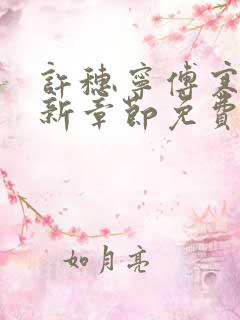 許穗寧傅寒
新章節免費
如月亮